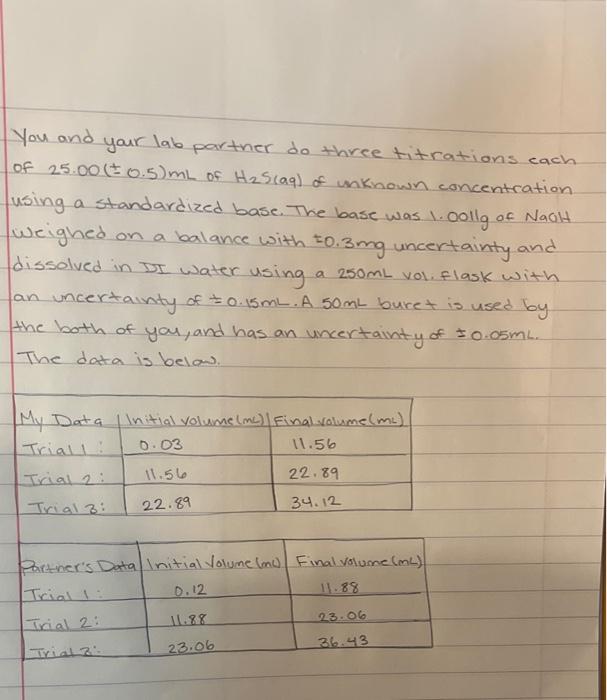 You and your lab partner do three titrations each
of 25.00(±0.5)mL of H2S(aq) of unknown concentration
using a standardized base. The base was 1.0011g of NaOH
weighed on a balance with ±0.3mg uncertainty and
dissolved in DI water using a 250mL vol. flask with
an uncertainty of ±0.15mL. A 50mL buret is used by
the both of you, and has an uncertainty of ±0.05mL.
The data is below.
My Data Initial volume(mL) Final volume(mL)
Trial 1: 0.03 11.56
Trial 2: 11.56 22.89
Trial 3: 22.89 34.12
Partner's Data Initial Volume (mL) Final volume (mL)
Trial 1: 0.12 11.88
Trial 2: 11.88 23.06
Trial 3: 23.06 36.43